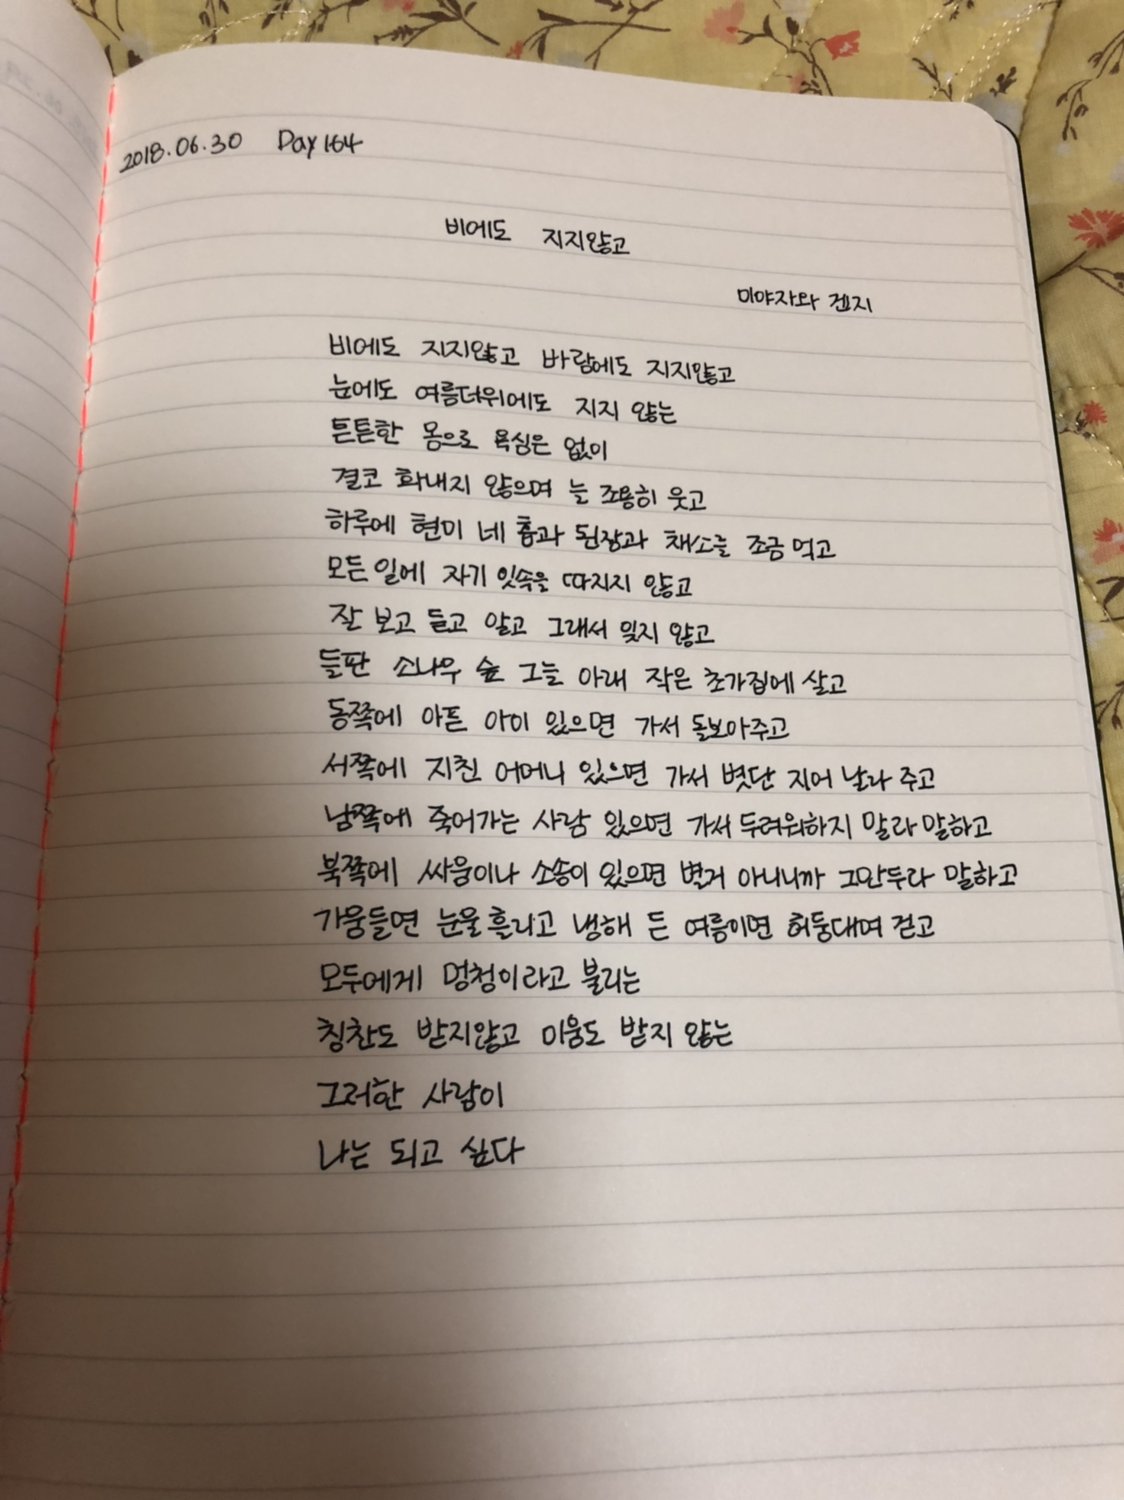 2018.06.30 Day 164
비에도 지지않고
미야자와 겐지
비에도 지지않고 바람에도 지지않고
눈에도 여름더위에도 지지 않는
튼튼한 몸으로 욕심은 없이
결코 화내지 않으며 늘 조용히 웃고
하루에 현미 네 홉과 된장과 채소를 조금 먹고
모든 일에 자기 잇속을 따지지 않고
잘 보고 듣고 알고 그래서 잊지 않고
들판 소나무 숲 그늘 아래 작은 초가집에 살고
동쪽에 아픈 아이 있으면 가서 돌보아주고
서쪽에 지친 어머니 있으면 가서 볏단 지어 날라 주고
남쪽에 죽어가는 사람 있으면 가서 두려워하지 말라 말하고
북쪽에 싸움이나 소송이 있으면 별거 아니니까 그만두라 말하고
가뭄들면 눈물 흘리고 냉해 든 여름이면 허둥대며 걷고
모두에게 멍청이라고 불리는
칭찬도 받지않고 미움도 받지 않는
그러한 사람이
나는 되고 싶다